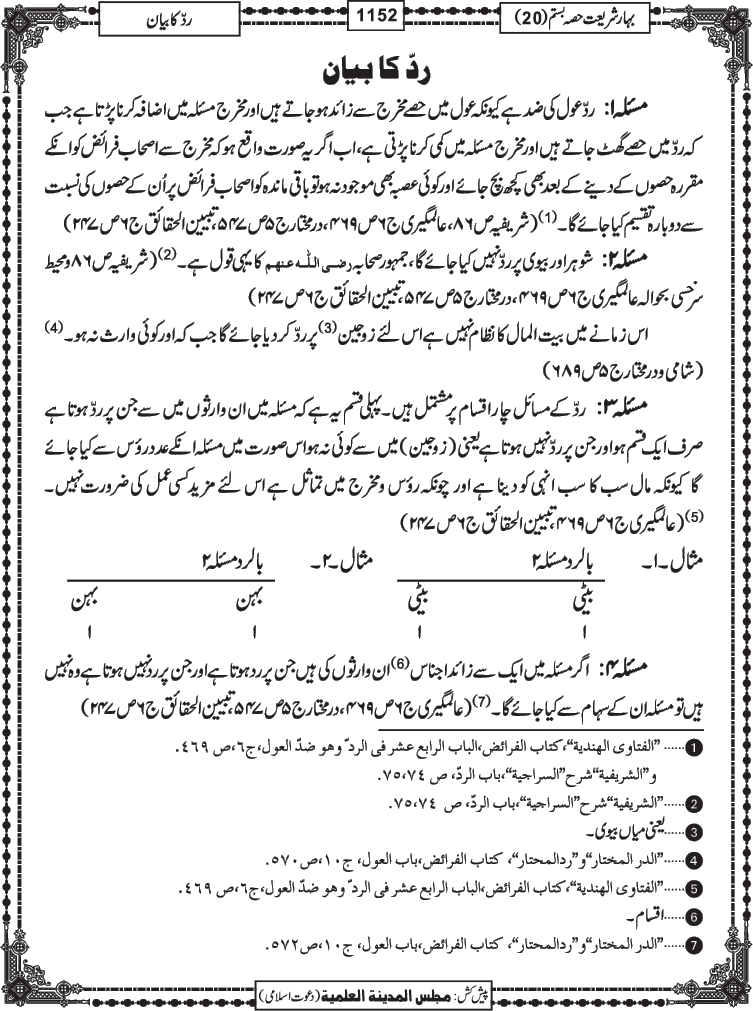 بہار شریعت حصہ بستم (20)
1152
ردّ کا بیان
ردّ کا بیان
مسئلہ ۱: ردّ عول کی ضد ہے کیونکہ عول میں حصے مخرج سے زائد ہو جاتے ہیں اور مخرج مسئلہ میں اضافہ کرنا پڑتا ہے جب
کہ ردّ میں حصے گھٹ جاتے ہیں اور مخرج مسئلہ میں کمی کرنا پڑتی ہے، اب اگر یہ صورت واقع ہو کہ مخرج سے اصحاب فرائض کو انکے
مقررہ حصوں کے دینے کے بعد بھی کچھ بچ جائے اور کوئی عصبہ بھی موجود نہ ہو تو باقی ماندہ کو اصحاب فرائض پر اُن کے حصوں کی نسبت
سے دوبارہ تقسیم کیا جائے گا۔(1) (شریفیہ ص۸۶، عالمگیری ج۶ ص۴۶۹، درمختار ج۵ ص۵۴۷، تبیین الحقائق ج۶ ص۲۴۷)
مسئلہ ۲: شوہر اور بیوی پر ردّ نہیں کیا جائے گا، جمہور صحابہ رضی اللہ عنہم کا یہی قول ہے۔(2) (شریفیہ ص۸۶ و محیط
سرخسی بحوالہ عالمگیری ج۶ ص۴۶۹، درمختار ج۵ ص۵۴۷، تبیین الحقائق ج۶ ص۲۴۷)
اس زمانے میں بیت المال کا نظام نہیں ہے اس لئے زوجین(3) پر ردّ کر دیا جائے گا جب کہ اور کوئی وارث نہ ہو۔(4)
(شامی و درمختار ج۵ ص۶۸۹)
مسئلہ ۳: ردّ کے مسائل چار اقسام پر مشتمل ہیں۔ پہلی قسم یہ ہے کہ مسئلہ میں ان وارثوں میں سے جن پر ردّ ہوتا ہے
صرف ایک قسم ہو اور جن پر ردّ نہیں ہوتا ہے یعنی (زوجین) میں سے کوئی نہ ہو اس صورت میں مسئلہ انکے عدد رؤس سے کیا جائے
گا کیونکہ مال سب کا سب انہی کو دینا ہے اور چونکہ رؤس و مخرج میں تماثل ہے اس لئے مزید کسی عمل کی ضرورت نہیں۔
(5) (عالمگیری ج۶ ص۴۶۹، تبیین الحقائق ج۶ ص۲۴۷)
مثال۔۱۔ بالرد مسئلہ ۲ مثال۔۲۔ بالرد مسئلہ ۲
بیٹی بیٹی بہن بہن
۱ ۱ ۱ ۱
مسئلہ ۴: اگر مسئلہ میں ایک سے زائد اجناس(6) ان وارثوں کی ہیں جن پر رد ہوتا ہے اور جن پر رد نہیں ہوتا ہے وہ نہیں
ہیں تو مسئلہ ان کے سہام سے کیا جائے گا۔(7) (عالمگیری ج۶ ص۴۶۹، درمختار ج۵ ص۵۴۷، تبیین الحقائق ج۶ ص۲۴۷)
1 ......"الفتاوى الهندية"، كتاب الفرائض، الباب الرابع عشر فى الردّ وهو ضدّ العول، ج٦، ص ٤٦٩.
و"الشريفية" شرح "السراجية"، باب الردّ، ص ٧٥،٧٤.
2 ......"الشريفية" شرح "السراجية"، باب الردّ، ص ٧٥،٧٤.
3 ......یعنی میاں بیوی۔
4 ......"الدر المختار" و"رد المحتار"، كتاب الفرائض، باب العول، ج١٠، ص٥٧٠.
5 ......"الفتاوى الهندية"، كتاب الفرائض، الباب الرابع عشر فى الردّ وهو ضدّ العول، ج٦، ص ٤٦٩.
6 ......اقسام۔
7 ......"الدر المختار" و"رد المحتار"، كتاب الفرائض، باب العول، ج١٠، ص٥٧٢.
پیش کش: مجلس المدينة العلمية (دعوت اسلامی)